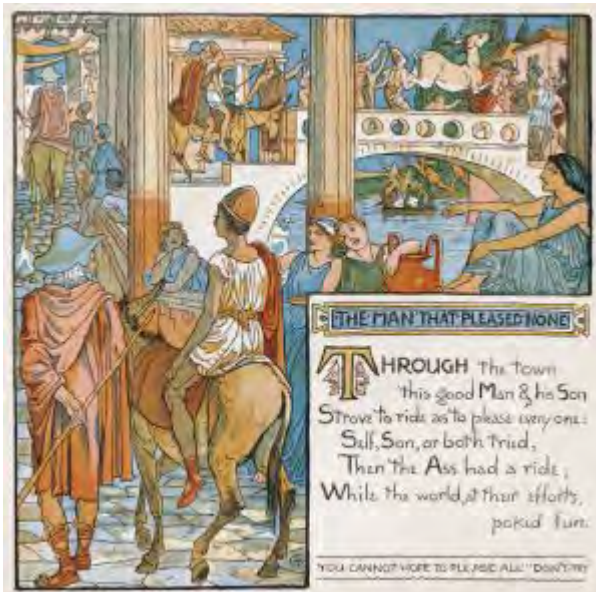 THE MAN THAT PLEASED NONE
THROUGH the town
this good Man & his Son
Strove to ride as to please everyone:
Self, Son, or both tried,
Then the Ass had a ride;
While the world, at their efforts,
poked fun.
YOU CANNOT HOPE TO PLEASE ALL—DON'T TRY